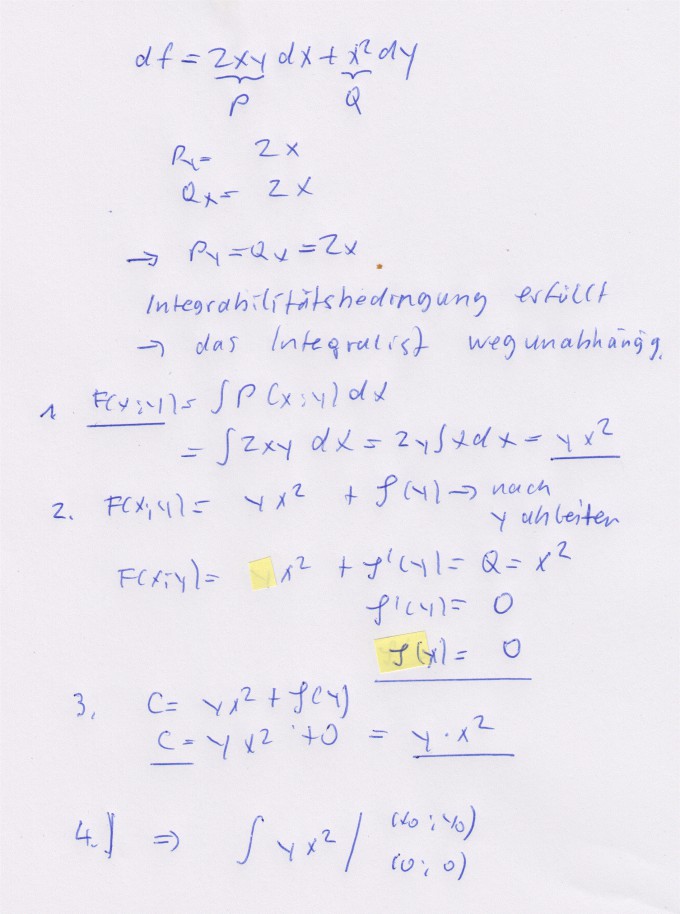 df = 2xy dx + x² dy
P Q
Py = 2x
Qx = 2x
→ Py = Qx = 2x
Integrabilitätsbedingung erfüllt
→ das Integral ist wegunabhängig.
1. F(x;y) = ∫P(x;y) dx
= ∫2xy dx = 2y∫xdx = yx²
2. F(x;y) = yx² + f(y) → nach
y ableiten
F(x;y) = x² + f'(y) = Q = x²
f'(y) = 0
f(x) = 0
3. C = yx² + f(y)
C = yx² + 0 = y · x²
4.] ⇒ ∫ yx² / (x0; y0)
(0; 0)